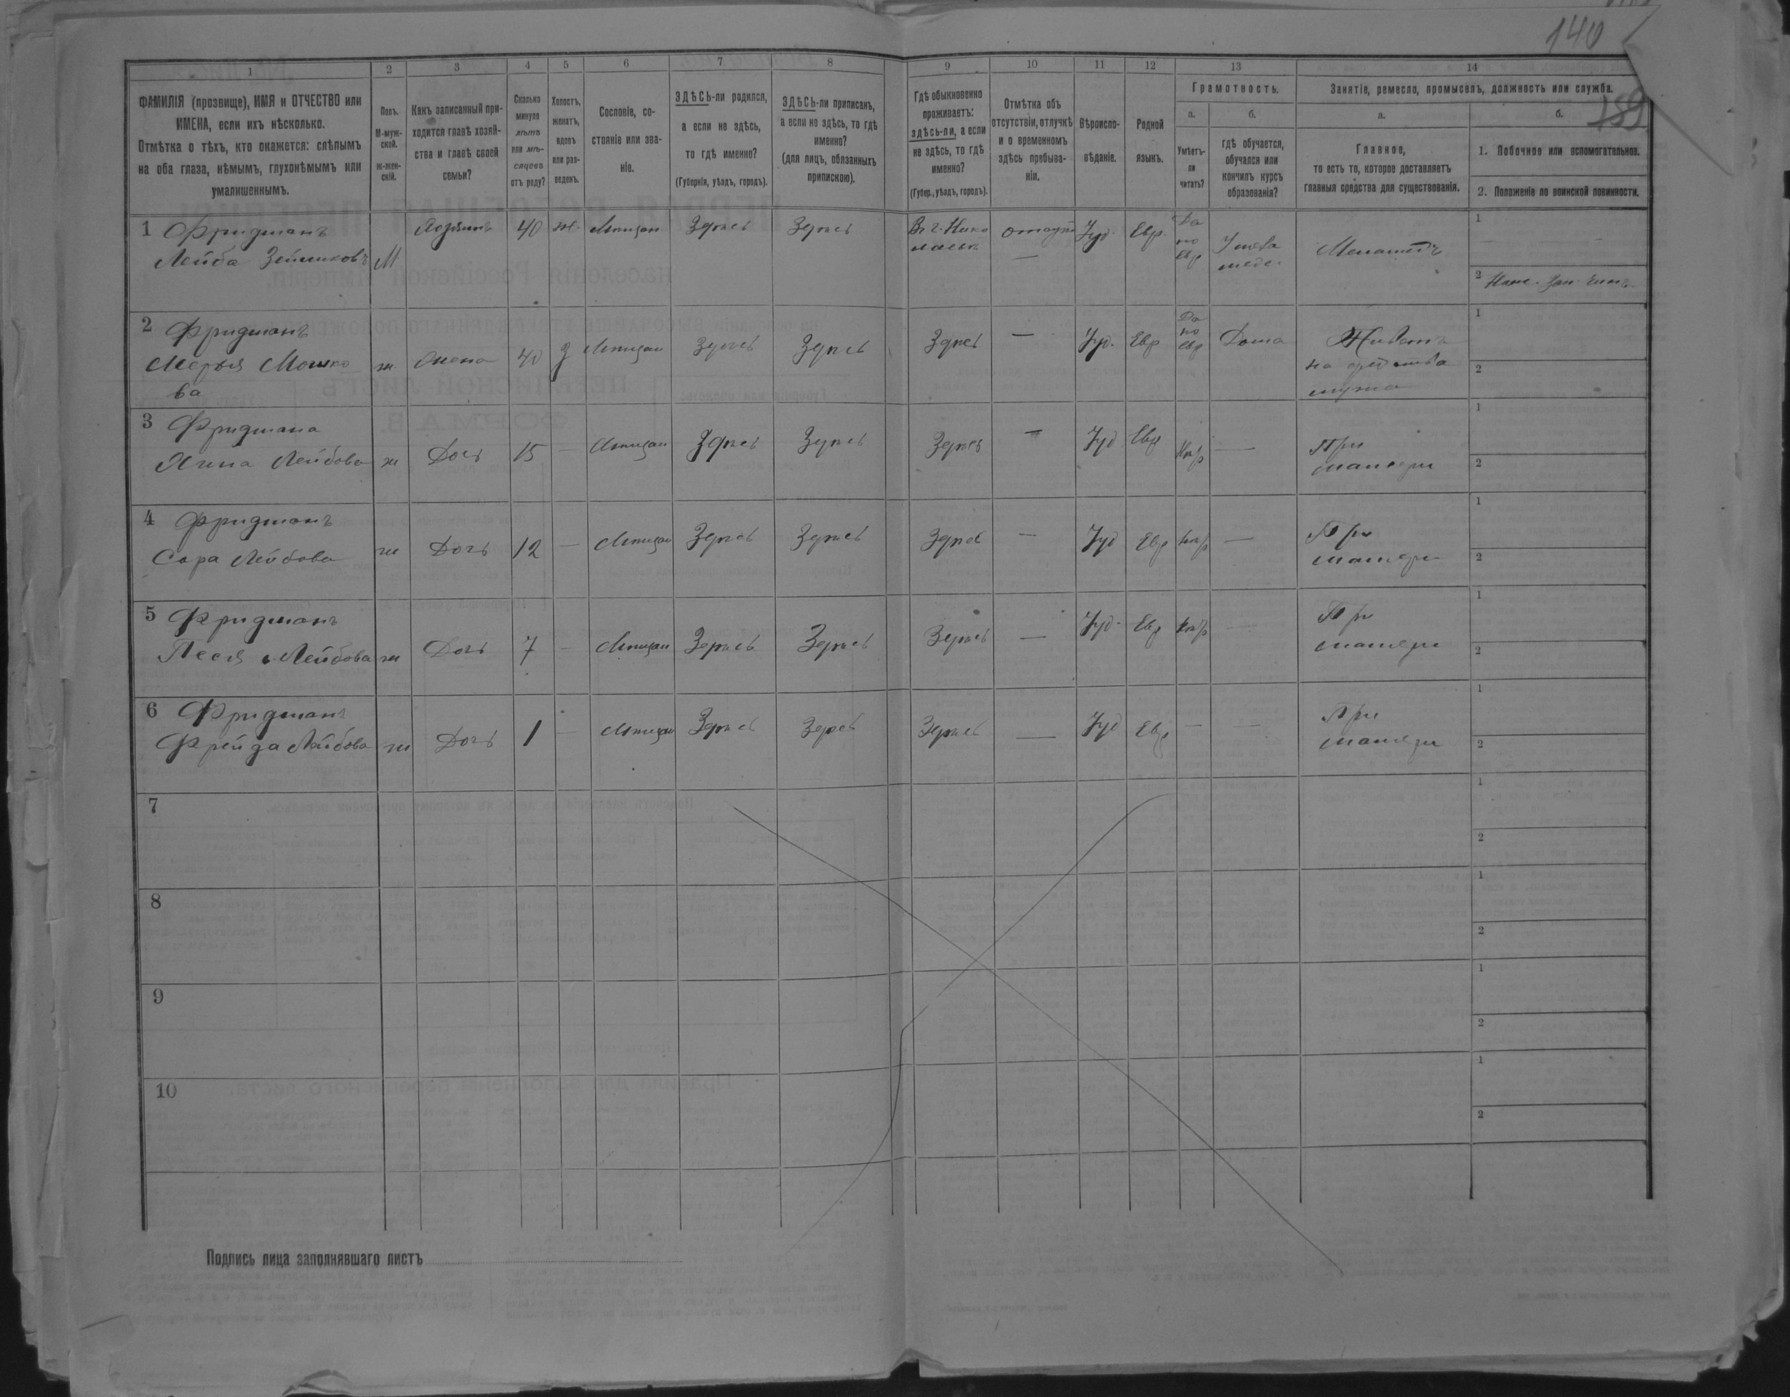 140
189
1
2
3
4
5
6
7
8
9
10
11
12
13
14
ФАМИЛІЯ (прозвище), ИМЯ и ОТЧЕСТВО или
ИМЕНА, если ихъ нѣсколько.
Отмѣтка о тѣхъ, кто окажется: слѣпымъ
на оба глаза, нѣмымъ, глухонѣмымъ или
умалишеннымъ.
Полъ.
М-муж-
ской.
ж-жен-
скій.
Какъ записанный при-
ходится главѣ хозяй-
ства и главѣ своей
семьи?
Сколько
минуло
лѣтъ
или мѣ-
сяцевъ
отъ роду?
Холостъ,
женатъ,
вдовъ
или раз-
веденъ.
Сословіе, со-
стояніе или зва-
ніе.
ЗДѢСЬ-ли родился,
а если не здѣсь,
то гдѣ именно?
(Губернія, уѣздъ, городъ).
ЗДѢСЬ-ли приписанъ,
а если не здѣсь, то гдѣ
именно?
(для лицъ, обязанныхъ
припискою).
Гдѣ обыкновенно
проживаетъ:
здѣсь-ли, а если
не здѣсь, то гдѣ
именно?
(Губер., уѣздъ, городъ).
Отмѣтка объ
отсутствіи, отлучкѣ
и о временномъ
здѣсь пребыва-
ніи.
Вѣроиспо-
вѣданіе.
Родной
языкъ.
Грамотность.
а.
Умѣетъ-
ли
читать?
б.
гдѣ обучается,
обучался или
кончилъ курсъ
образованія?
Занятіе, ремесло, промыселъ, должность или служба.
а.
Главное,
то есть то, которое доставляетъ
главныя средства для существованія.
б.
1. Побочное или вспомогательное.
2. Положеніе по воинской повинности.
1 Фридманъ
Лейба
М
Хозяинъ
40
ж
Мѣщан
Здѣсь
Здѣсь
Въ г. Нико
лаевѣ
Іуд.
Евр.
Да
по
Евр
У
Меламедъ
1
2
2 Фридманъ
Мошко
ва
ж
Жена
40
З
Мѣщан
Здѣсь
Здѣсь
Здѣсь
—
Іуд.
Евр
Да
по
Евр
Дома
на средства
мужа
1
2
3 Фридмана
Лейбова
ж
Дочь
15
—
Мѣщан
Здѣсь
Здѣсь
Здѣсь
—
Іуд
Евр
—
При
матери
1
2
4 Фридманъ
Сора Лейбова
ж
Дочь
12
—
Мѣщан
Здѣсь
Здѣсь
Здѣсь
—
Іуд
Евр
—
При
матери
1
2
5 Фридманъ
Песя Лейбова
ж
Дочь
7
—
Мѣщан
Здѣсь
Здѣсь
Здѣсь
—
Іуд.
Евр
—
При
матери
1
2
6 Фридманъ
Фрейда Лейбова
ж
Дочь
1
—
Мѣщан
Здѣсь
Здѣсь
Здѣсь
—
Іуд
Евр
—
—
При
матери
1
2
7
1
2
8
1
2
9
1
2
10
1
2
Подпись лица заполнявшаго листъ